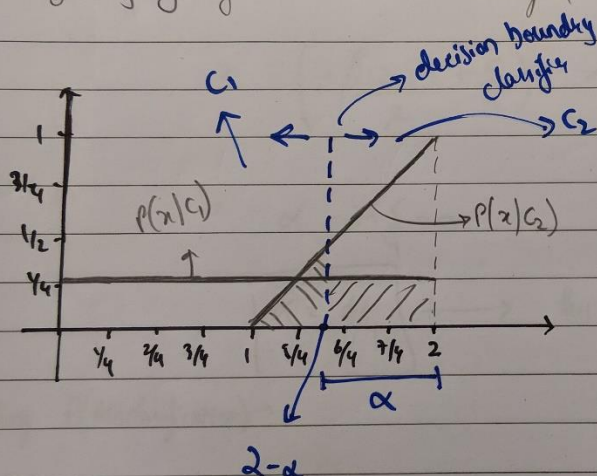 decision boundry
classifier
C₁
C₂
1
3/4
P(x|C₁)
P(x|C₂)
1/2
1/4
1/4
2/4
3/4
1
5/4
6/4
7/4
2
α
2-α